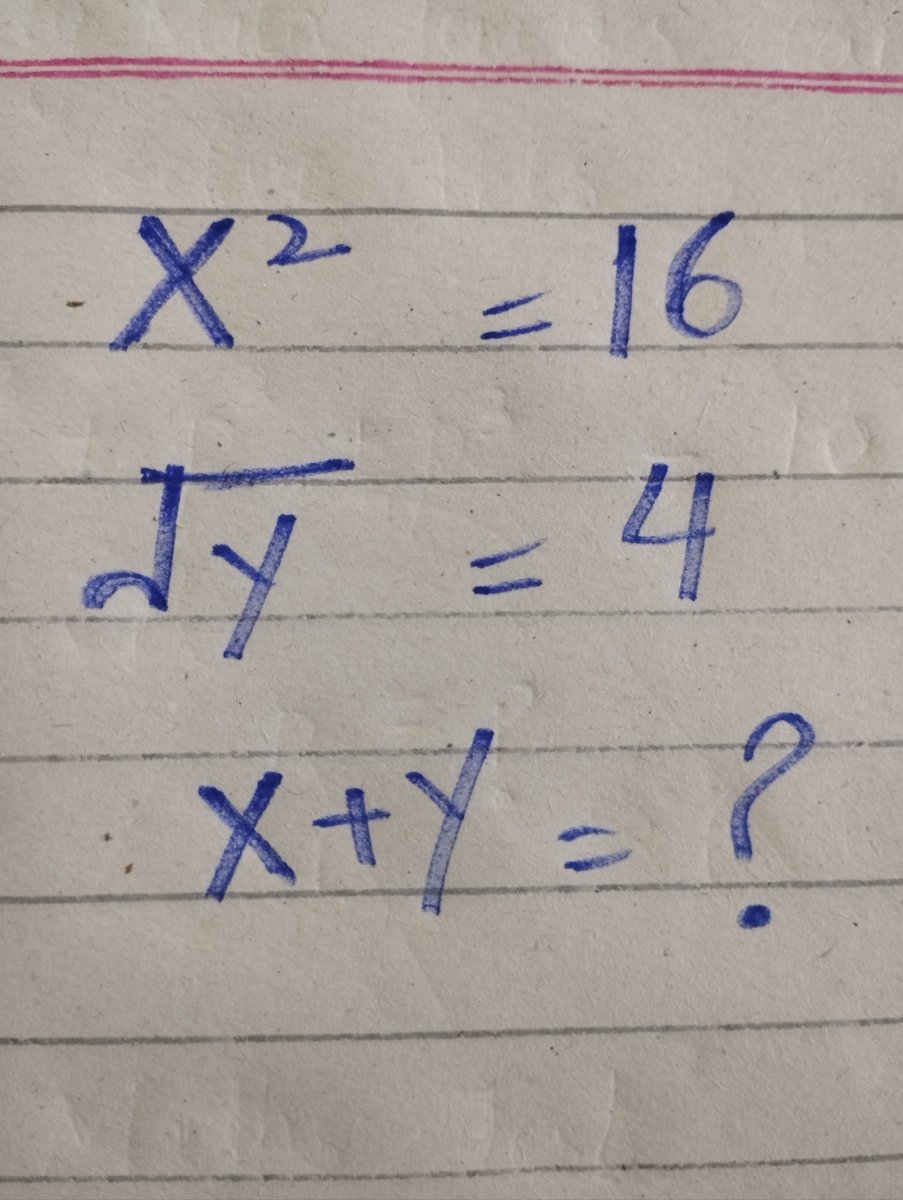 X² = 16
√y = 4
X + y = ?